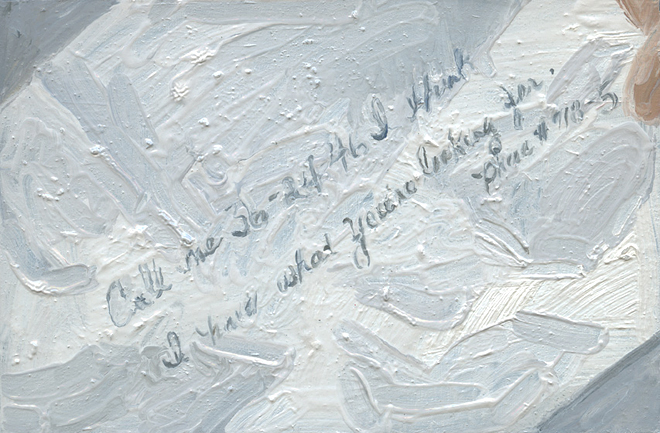 Call me 36-24-46 I think
I have what you're looking for.
Phone # 718-5